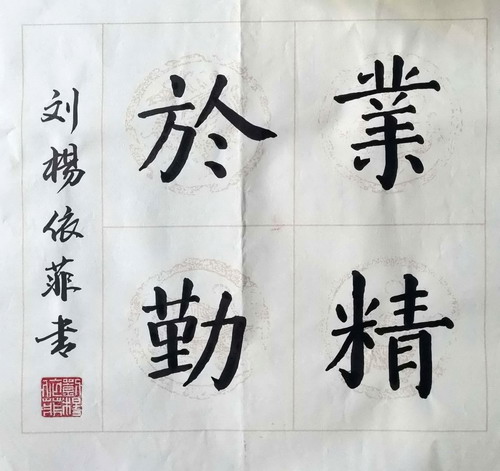 業精
於勤
刘楊依菲书